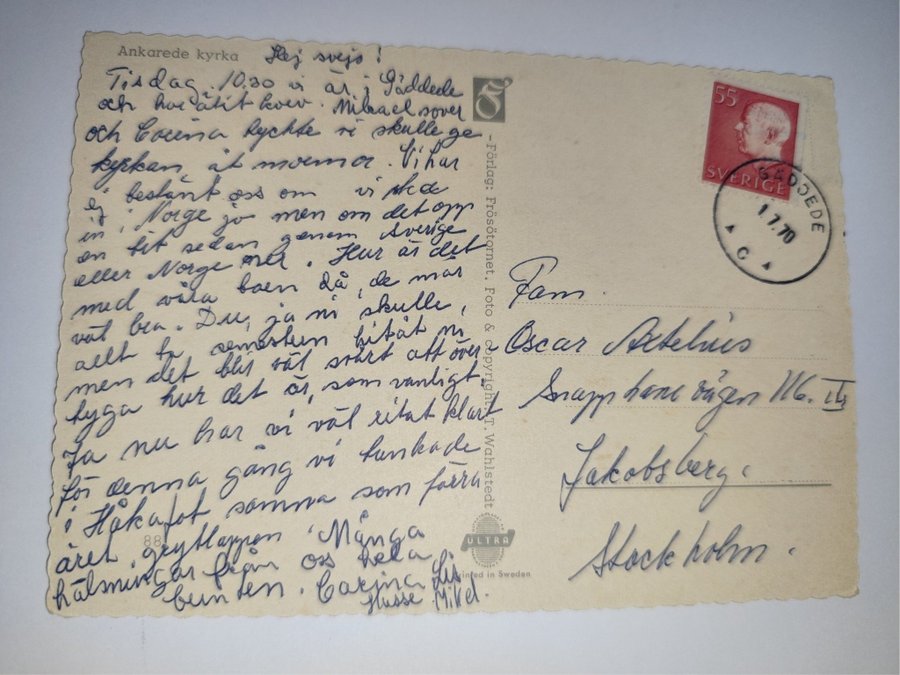 Ankarede kyrka
Hej svejs!
Tisdag 10.30 vi är i Gäddede
och har ätit korv. Mikael sover
och Carina tyckte vi skulle ge
kyrkan åt mormor. Vi har
ej bestämt oss om vi
in i Norge ju men om det
en bit sedan genom Sverige
eller Norge ner. Hur är det
med våra barn då, de mår
väl bra. Du, ja ni skulle,
allt ta semestern hitåt ni
men det blir väl svårt att över-
tyga hur det är, som vanligt
Ja nu har vi väl ritat klart
för denna gång vi tankade
i Håkafot samma som förra
året grytlappen. Många
hälsningar från oss hela
bunten. Carina Lis
Husse Mikel.
88
- Förlag: Frösötornet. Foto & copyright: T. Wahlstedt -
ULTRA
Printed in Sweden
55
SVERIGE
GÄDDEDE
1.7.70
C
Fam.
Oscar Artelius
Snapphanevägen 116.
Jakobsberg.
Stockholm.